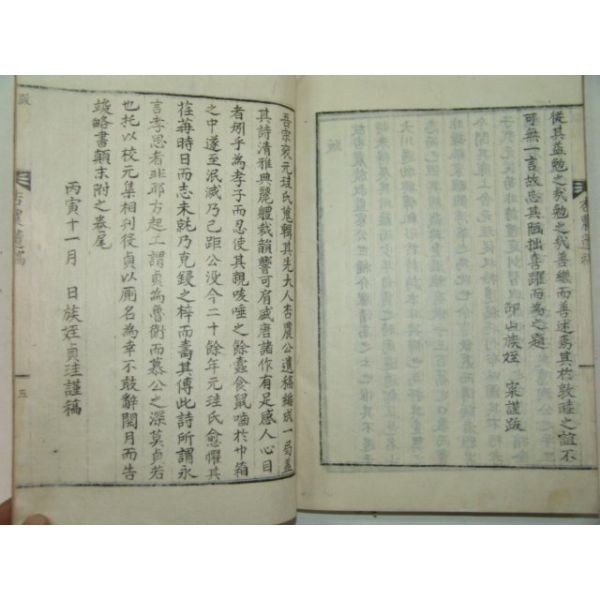 從其益勉之哉勉之哉善繼而善述焉其於敦睦之誼不
可無一言故忘其孤拙喜躍而為之題
族姪 寀謹跋
跋
吾宗 元珪氏蒐輯其先大人杏農公遺稿編成一局蓋
其詩清雅典麗體裁韻響可肩盛唐諸作有足感人心目
者矧乎為孝子而忍使其親咳唾之餘蠹食鼠嚙於巾箱
之中遂至泯滅乃已距公沒今二十餘年元珪氏愈懼其
荏苒時日而志未就乃克鋟之梓而壽其傳此詩所謂永
言孝思者非耶方起工謂貞為魯衛而慕公之深莫貞若
也托以校元集相刊役貞以厠名為幸不敢辭閱月而告
竣略書顛末附之卷尾
丙寅十一月 日族姪貞珪謹稿
杏農遺稿
五
杏農遺稿